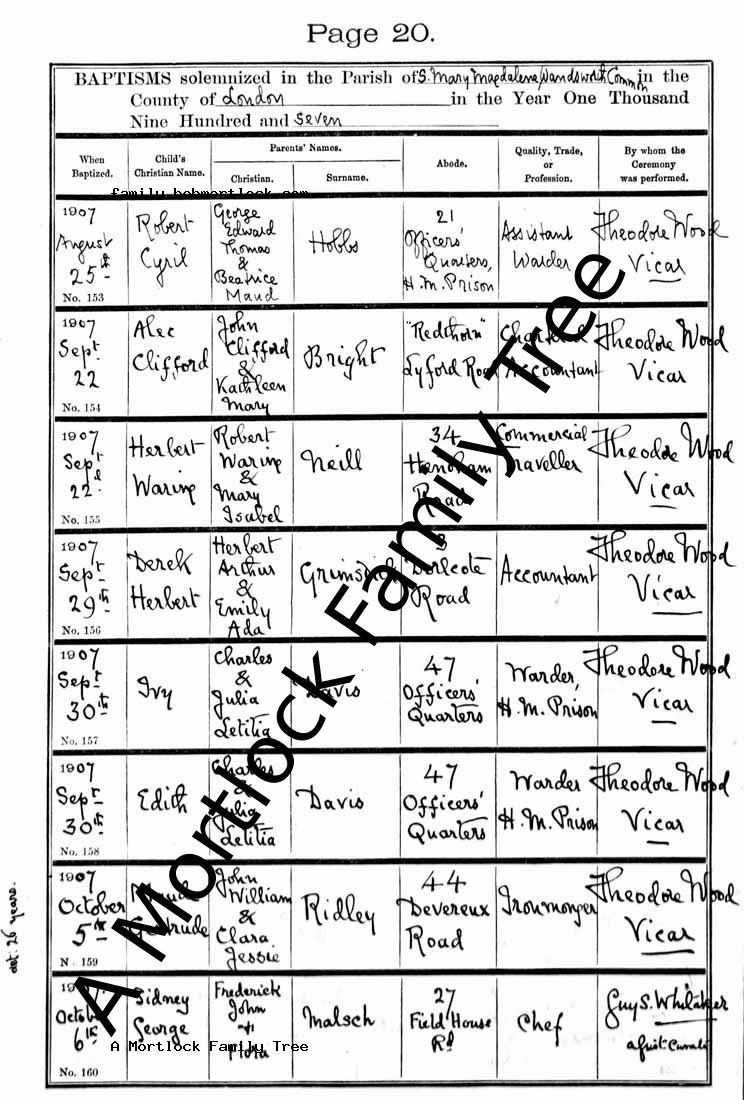 Page 20.
BAPTISMS solemnized in the Parish of S. Mary Magdalene, Wandsworth Common in the
County of London in the Year One Thousand
Nine Hundred and Seven
When Baptized.
Child's Christian Name.
Parents' Names.
Christian.
Surname.
Abode.
Quality, Trade, or Profession.
By whom the Ceremony was performed.
family.bobmortlock.com
1907
August
25th
No. 153
Robert
Cyril
George
Edward
Thomas
&
Beatrice
Maud
Hobbs
21
Officers'
Quarters,
H.M. Prison
Assistant
Warder
Theodore Wood
Vicar
1907
Sept
22
No. 154
Alec
Clifford
John
Clifford
&
Kathleen
Mary
Bright
"Redthorn"
Lyford Road
Chartered
Accountant
Theodore Wood
Vicar
1907
Sept
22d
No. 155
Herbert
Waring
Robert
Waring
&
Mary
Isabel
Neill
34
Road
Commercial
Traveller
Theodore Wood
Vicar
1907
Sept
29th
No. 156
Derek
Herbert
Herbert
Arthur
&
Emily
Ada
Dorlcote
Road
Accountant
Theodore Wood
Vicar
1907
Sept
30th
No. 157
Ivy
Charles
&
Julia
Letitia
Davis
47
Officers'
Quarters
Warder,
H.M. Prison
Theodore Wood
Vicar
1907
Sept
30th
No. 158
Edith
Charles
&
Julia
Letitia
Davis
47
Officers'
Quarters
Warder
H.M. Prison
Theodore Wood
Vicar
aet. 26 years.
1907
October
5th
N 159
Gertrude
John
William
&
Clara
Jessie
Ridley
44
Devereux
Road
Ironmonger
Theodore Wood
Vicar
October
6th
No. 160
Sidney
George
Frederick
John
+
Flora
Malsch
27
Field House
Rd
Chef
Guy S. Whitaker
A Mortlock Family Tree
A Mortlock Family Tree